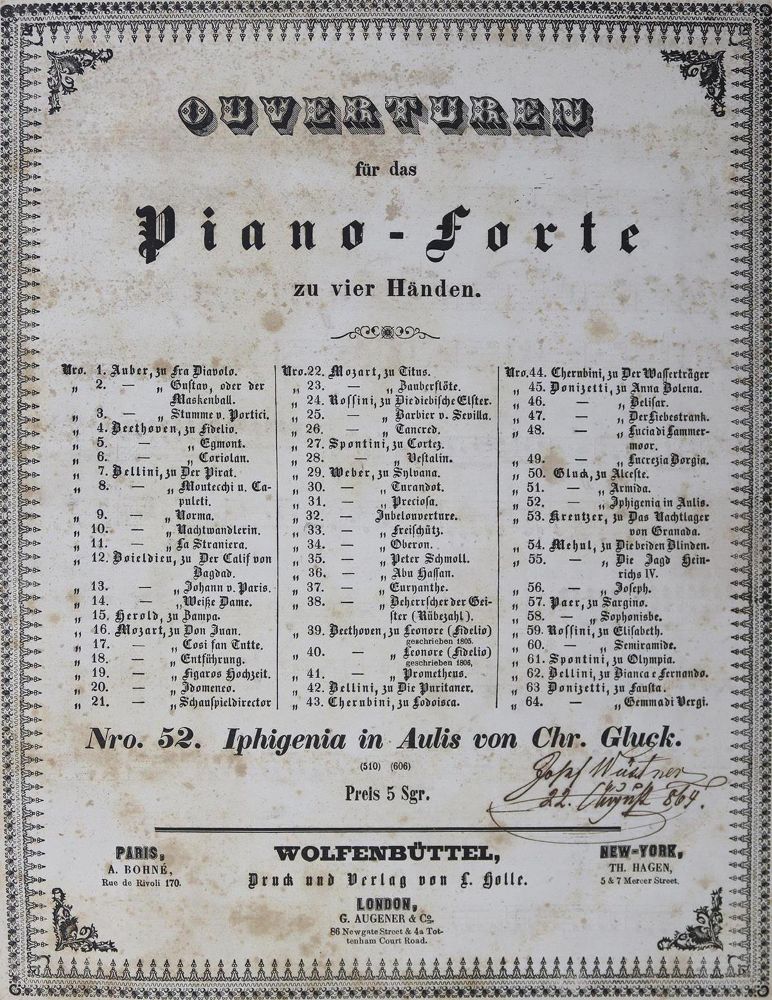 OUVERTUREN
für das
Piano-Forte
zu vier Händen.
Nro. 1. Auber, zu Fra Diavolo.
„ 2. — „ Gustav, oder der
Maskenball.
„ 3. — „ Stumme v. Portici.
„ 4. Beethoven, zu Fidelio.
„ 5. — „ Egmont.
„ 6. — „ Coriolan.
„ 7. Bellini, zu Der Pirat.
„ 8. — „ Montecchi u. Ca-
puleti.
„ 9. — „ Norma.
„ 10. — „ Nachtwandlerin.
„ 11. — „ La Straniera.
„ 12. Boieldieu, zu Der Calif von
Bagdad.
„ 13. — „ Johann v. Paris.
„ 14. — „ Weiße Dame.
„ 15. Herold, zu Zampa.
„ 16. Mozart, zu Don Juan.
„ 17. — „ Cosi fan Tutte.
„ 18. — „ Entführung.
„ 19. — „ Figaros Hochzeit.
„ 20. — „ Idomeneo.
„ 21. — „ Schauspieldirector
Nro. 22. Mozart, zu Titus.
„ 23. — „ Zauberflöte.
„ 24. Rossini, zu Die diebische Elster.
„ 25. — „ Barbier v. Sevilla.
„ 26. — „ Tancred.
„ 27. Spontini, zu Cortez.
„ 28. — „ Vestalin.
„ 29. Weber, zu Sylvana.
„ 30. — „ Turandot.
„ 31. — „ Preciosa.
„ 32. — Jubelouverture.
„ 33. — „ Freischütz.
„ 34. — „ Oberon.
„ 35. — „ Peter Schmoll.
„ 36. — „ Abu Hassan.
„ 37. — „ Euryanthe.
„ 38. — „ Beherrscher der Gei-
ster (Rübezahl).
„ 39. Beethoven, zu Leonore (Fidelio)
geschrieben 1805.
„ 40. — „ Leonore (Fidelio)
geschrieben 1806,
„ 41. — „ Prometheus.
„ 42. Bellini, zu Die Puritaner.
„ 43. Cherubini, zu Lodoisca.
Nro. 44. Cherubini, zu Der Wasserträger
„ 45. Donizetti, zu Anna Bolena.
„ 46. — „ Belisar.
„ 47. — „ Der Liebestrank.
„ 48. — „ Lucia di Lammer-
moor.
„ 49. — „ Lucrezia Borgia.
„ 50. Gluck, zu Alceste.
„ 51. — „ Armida.
„ 52. — „ Iphigenia in Aulis.
„ 53. Kreutzer, zu Das Nachtlager
von Granada.
„ 54. Mehul, zu Die beiden Blinden.
„ 55. — „ Die Jagd Hein-
richs IV.
„ 56. — „ Joseph.
„ 57. Paer, zu Sargino.
„ 58. — „ Sophonisbe.
„ 59. Rossini, zu Elisabeth.
„ 60. — „ Semiramide.
„ 61. Spontini, zu Olympia.
„ 62. Bellini, zu Bianca e Fernando.
„ 63 Donizetti, zu Fausta.
„ 64. — „ Gemma di Vergi.
Nro. 52. Iphigenia in Aulis von Chr. Gluck.
(510) (606)
Preis 5 Sgr.
Josef Wüstner
22. August 864.
PARIS,
A. BOHNÉ,
Rue de Rivoli 170.
WOLFENBÜTTEL,
Druck und Verlag von L. Holle.
LONDON,
G. AUGENER & Co.
86 Newgate Street & 4a Tot-
tenham Court Road.
NEW-YORK,
TH. HAGEN,
5 & 7 Mercer Street.